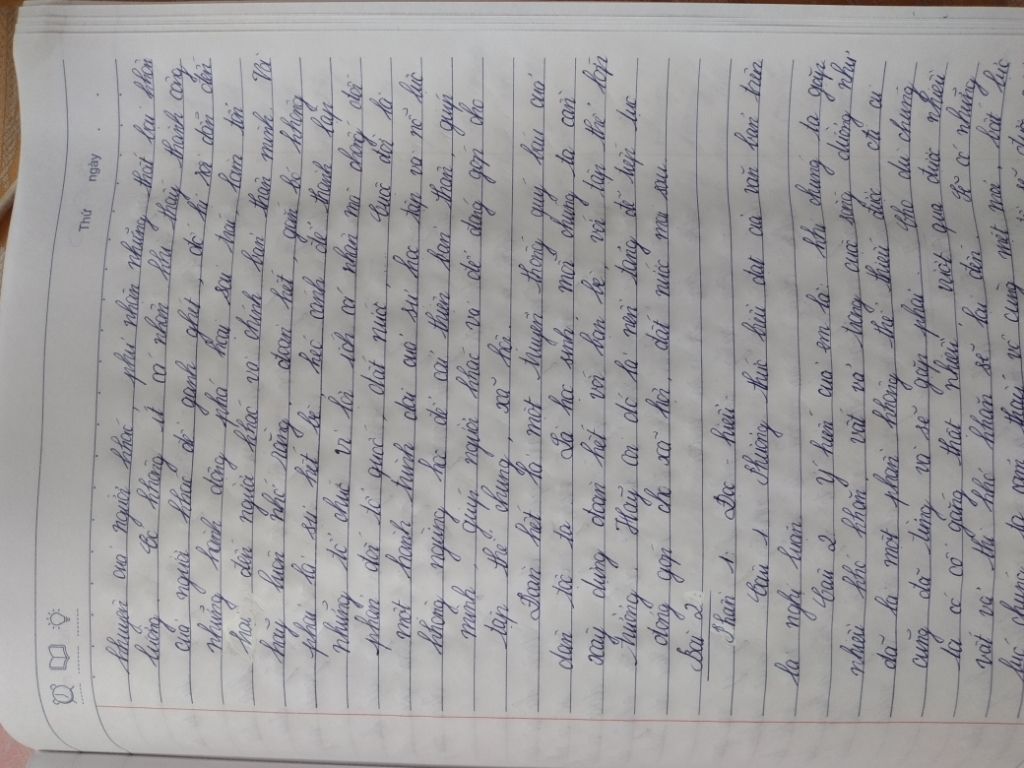 Thứ ngày
khuyên của người khác, phủ nhận những thất bại thân
lượng. Có không ít cá nhân khi thấy thành công
của người khác đố ganh ghét, đố kị rồi dẫn đến
những hành động phá hoại sau sau làm tới
hại đến người khác và chính bản thân mình. Vì
hãy luôn nhớ rằng, đoàn kết, gắn bó không
phải là sự kết bè, kéo cánh để thành lập
những tổ chức vì lợi ích cá nhân mà chống đối
phản đối tổ quốc, đất nước, Cuộc đời là
một hành trình dài của sự học tập và nỗ lực
không ngừng nghỉ để cải thiện bản thân, giúp
mình, giúp người khác và để đóng góp cho
tập thể chung, xã hội.
Đoàn kết là một truyền thống quý báu của
dân tộc ta. Là học sinh mỗi chúng ta cần
xây dựng đoàn kết với bạn bè, với tập thể lớp
trường. Hãy coi đó là nền tảng để tiếp tục
đóng góp cho xã hội, đất nước mai sau.
Bài 2
Phần 1: Đọc hiểu.
Câu 1: Phương thức biểu đạt của văn bản trên
là nghị luận
Câu 2: Ý kiến của em là khi chúng ta gặp
nhiều khó khăn, vất vả trong cuộc sống dường như
đã là một phần không thể thiếu được, ai ai
cũng đã từng và sẽ gặp phải. Cho dù chúng
ta có cố gắng thật nhiều, vượt qua được nhiều
vất vả thì khó khăn sẽ lại đến. Sẽ có những
lúc chúng ta cảm thấy vô cùng mệt mỏi, bất lực